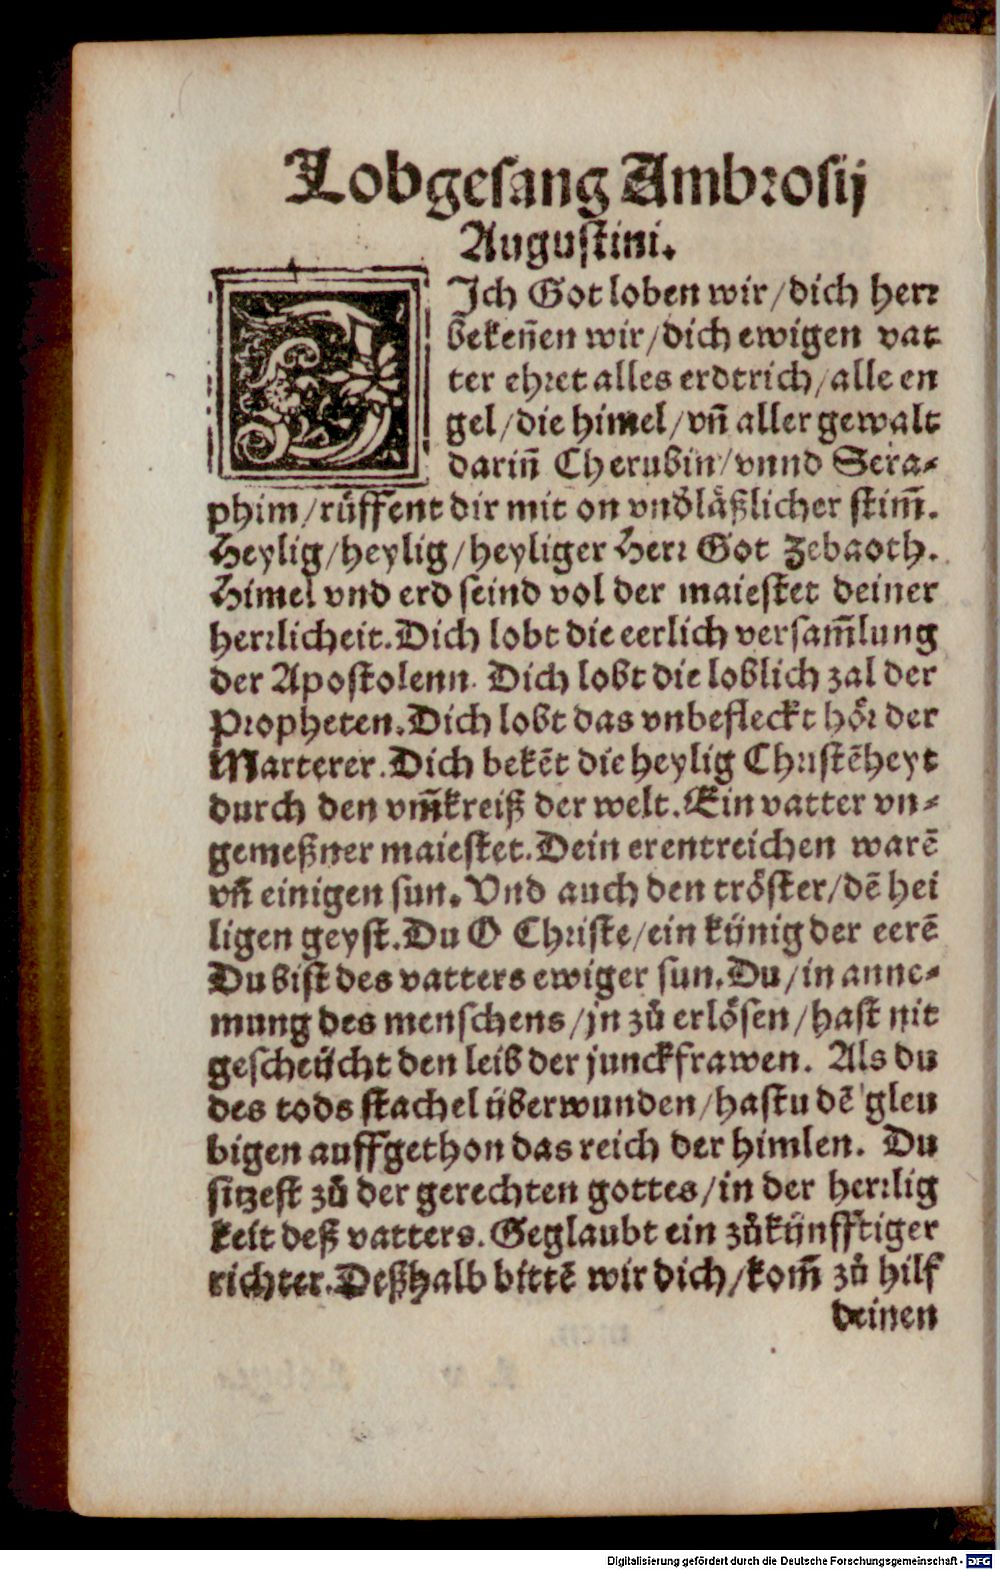 Lobgesang Ambrosij
Augustini.
DJch Got loben wir/dich herr
bekeñen wir/dich ewigen vat
ter ehret alles erdtrich/alle en
gel/die himel/vñ aller gewalt
dariñ Cherubin/vnnd Sera⸗
phim/rüffent dir mit on vndläßlicher stim̃.
Heylig/heylig/heyliger Herr Got Zebaoth.
Himel vnd erd seind vol der maiestet deiner
herrlicheit. Dich lobt die eerlich versam̃lung
der Apostolenn. Dich lobt die loblich zal der
Propheten. Dich lobt das vnbefleckt hör der
Marterer. Dich bekẽt die heylig Christẽheyt
durch den vm̃kreiß der welt. Ein vatter vn⸗
gemeßner maiestet. Dein erentreichen warẽ
vñ einigen sun. Vnd auch den tröster/dẽ hei
ligen geyst. Du O Christe/ein künig der eerẽ
Du bist des vatters ewiger sun. Du/in anne⸗
mung des menschens/jn zů erlösen/hast nit
gescheücht den leib der junckfrawen. Als du
des tods stachel überwunden/hastu dẽ gleu
bigen auffgethon das reich der himlen. Du
sitzest zů der gerechten gottes/in der herrlig
keit deß vatters. Geglaubt ein zůkünfftiger
richter. Deßhalb bittẽ wir dich/kom̃ zů hilf
deinen
Digitalisierung gefördert durch die Deutsche Forschungsgemeinschaft - DFG